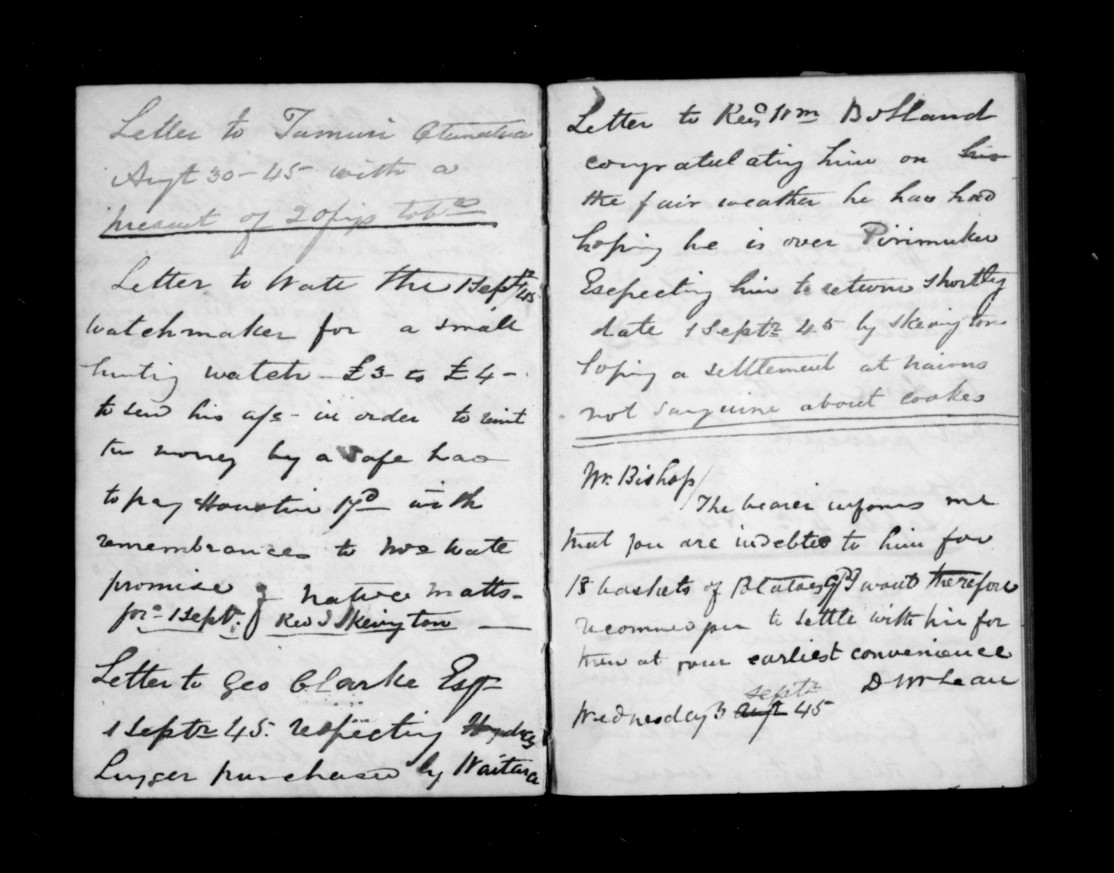 Letter to Tamuri Otumatua
Augt 30 - 45 with a
present of 20 figs tobco
Letter to Wate the 1 Septr /45
watchmaker for a small
hunting watch - £3 - to £4 -
to send his a/c - in order to remit
the money by a safe hand
to pay Houston 17d with
remembrances to Mrs Wate
promise of native matts -
for 1 Sept. Revd Skevington
Letter to Geo Clarke Esqr
1 Septr 45. respecting
Lugger purchased by Waitara
Letter to Revd Wm Bolland
congratulating him on his
the fair weather he has had
hoping he is over Pirimuku
Escpecting him to return shortly
date 1 Septr 45 by Skevington
hoping a settlement at nairns
not sanguine about cookes
Mr. Bishop/
The bearer informs me
that you are indebted to him for
18 baskets of Potatoes I would therefore
recommend you to settle with him for
them at your earliest convenience
D McLean
Septr
Wednesday 3 Augt 45